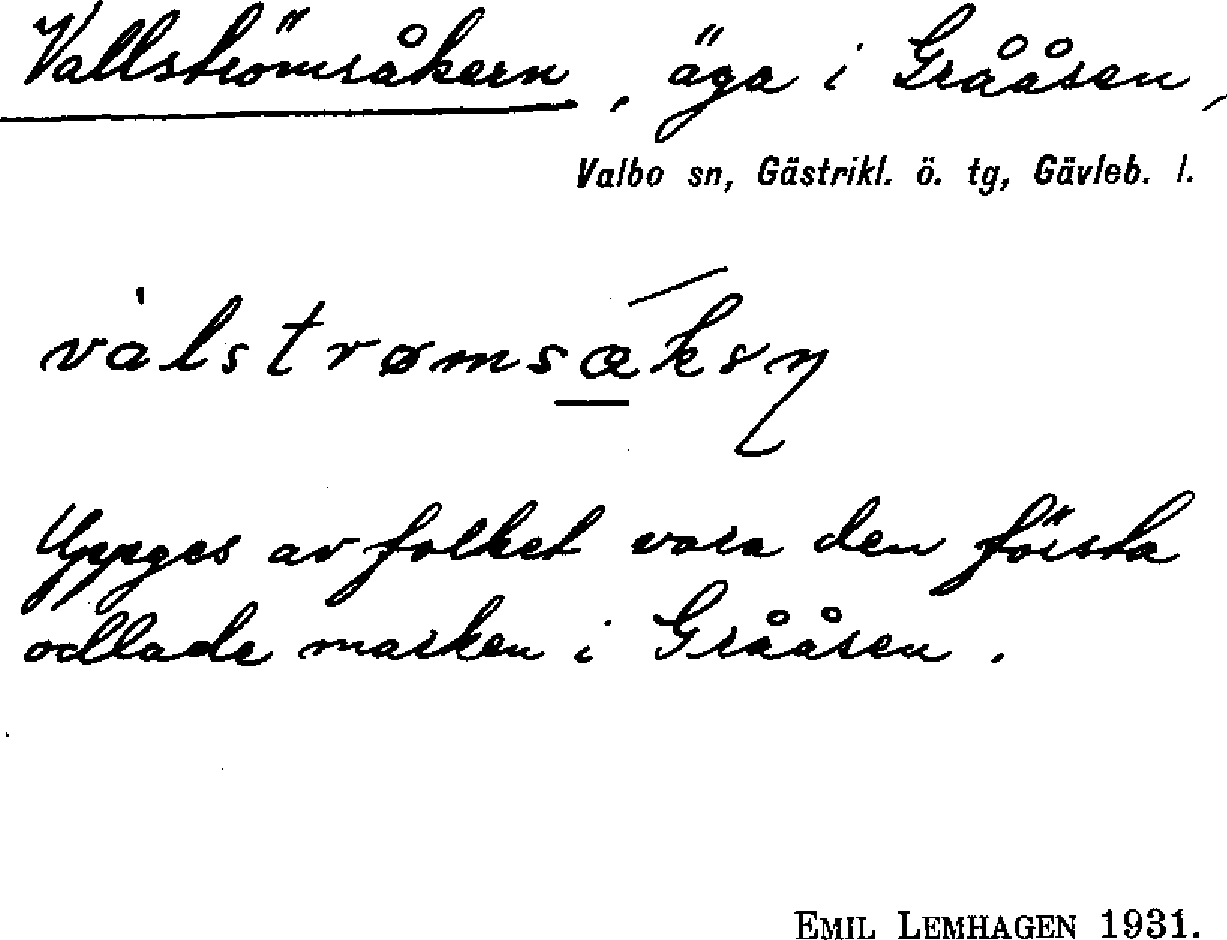 Vallströmsåkern, äga i Grååsen,
Valbo sn, Gästrikl. ö. tg, Gävleb. l.
Uppges av folket vara den första
odlade marken i Grååsen.
EMIL LEMHAGEN 1931.